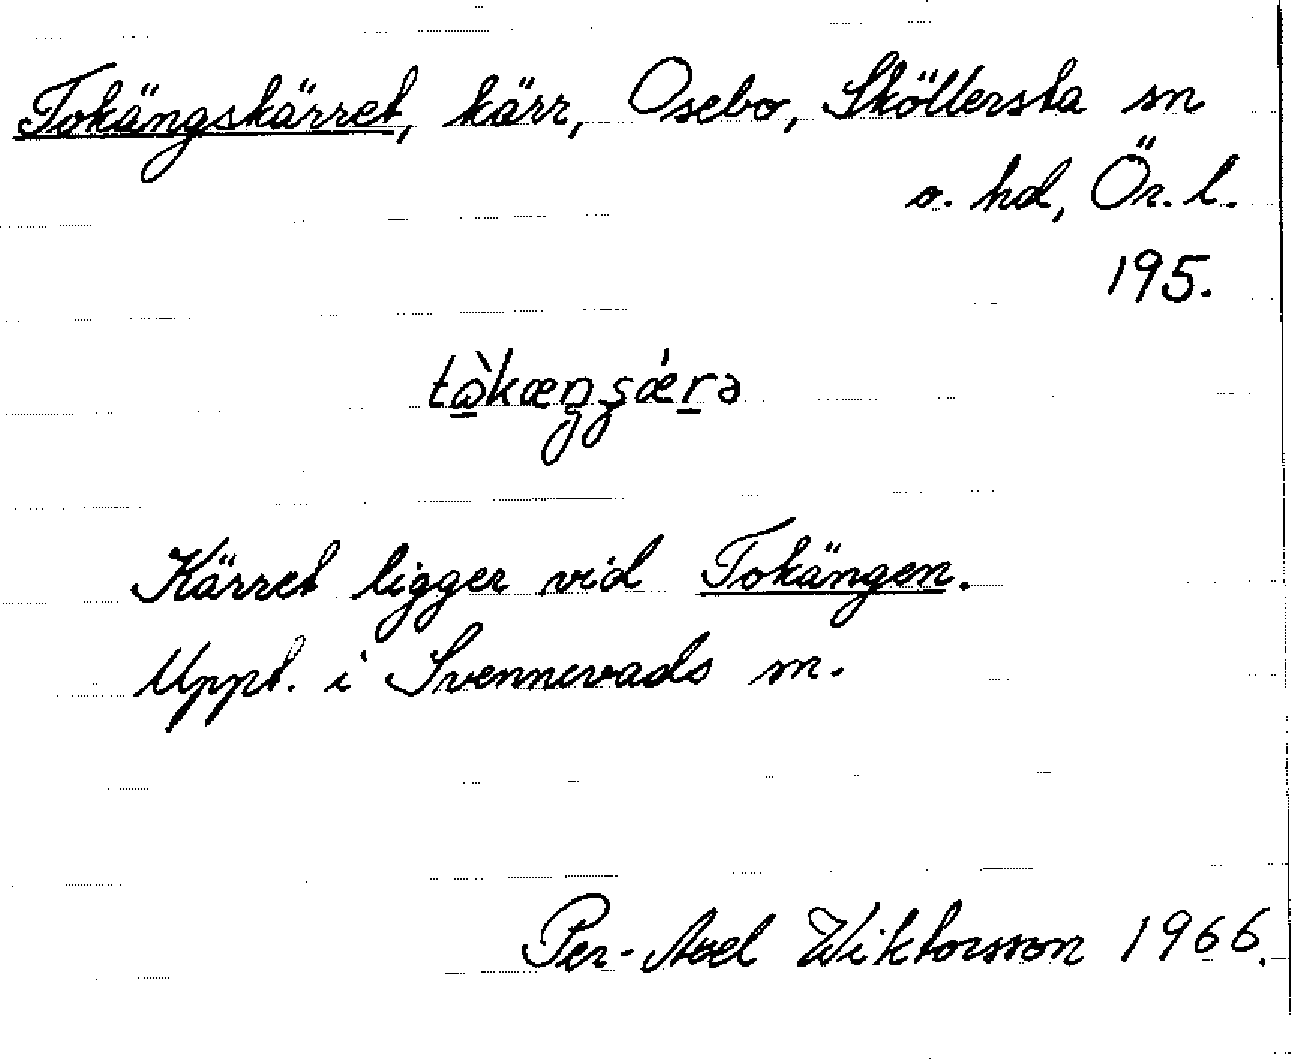 Tokängskärret, kärr, Osebo, Sköllersta sn
o. hd, Ör. l.
195.
Kärret ligger vid Tokängen.
Uppt. i Svennevads sn.
Per-Axel Wiktorsson 1966.